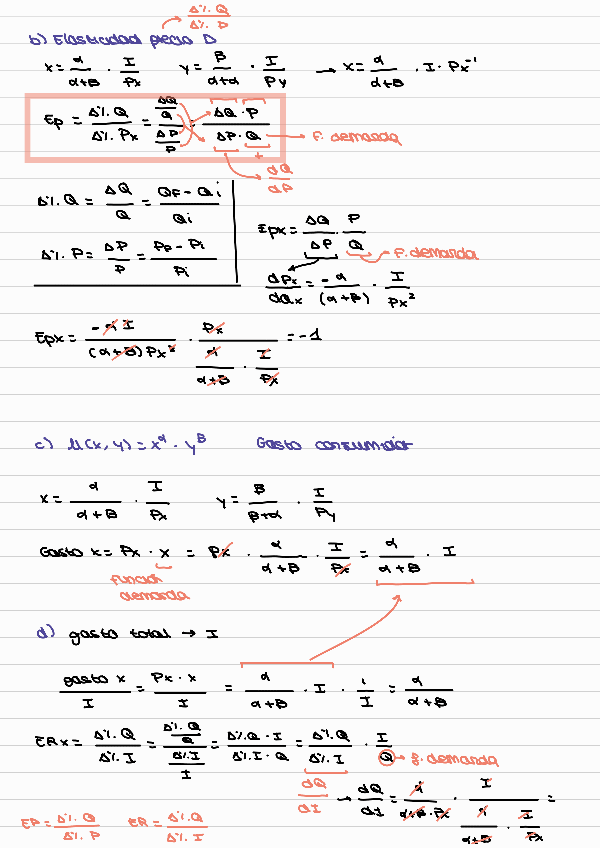 Δ% Q / Δ% P
b) Elasticidad precio D
x = α/(α+B) · I/Px   y = B/(α+α) · I/Py → x = α/(α+B) · I · Px⁻¹
Ep = Δ% Q / Δ% Px = (ΔQ/Q)/(ΔP/P) = (ΔQ · P)/(ΔP · Q) → F. demanda
dQ/dP
Δ% Q = ΔQ/Q = (QF - Qi)/Qi
Epx = ΔQ/ΔP · P/Q → F. demanda
Δ% P = ΔP/P = (PF - Pi)/Pi
dPx/dQx = -α/(α+B) · I/Px²
Epx = -α I/((α+B) Px²) · Px/(α/(α+B) · I/Px) = -1
c) U(x, y) = x^α · y^B   Gasto consumidor
x = α/(α+B) · I/Px   y = B/(B+α) · I/Py
Gasto x = Px · x = Px · α/(α+B) · I/Px = α/(α+B) · I
función
demanda
d) gasto total → I
gasto x/I = Px · x/I = α/(α+B) · I · 1/I = α/(α+B)
ERx = Δ% Q/Δ% I = (Δ% Q/Q)/(Δ% I/I) = (Δ% Q · I)/(Δ% I · Q) = Δ% Q/Δ% I · I/Q → f. demanda
dQ/dI → dQ/dI = α/(α+B · Px) · I/(α/(α+B) · I/Px) =
EP = Δ% Q/Δ% P   ER = Δ% Q/Δ% I